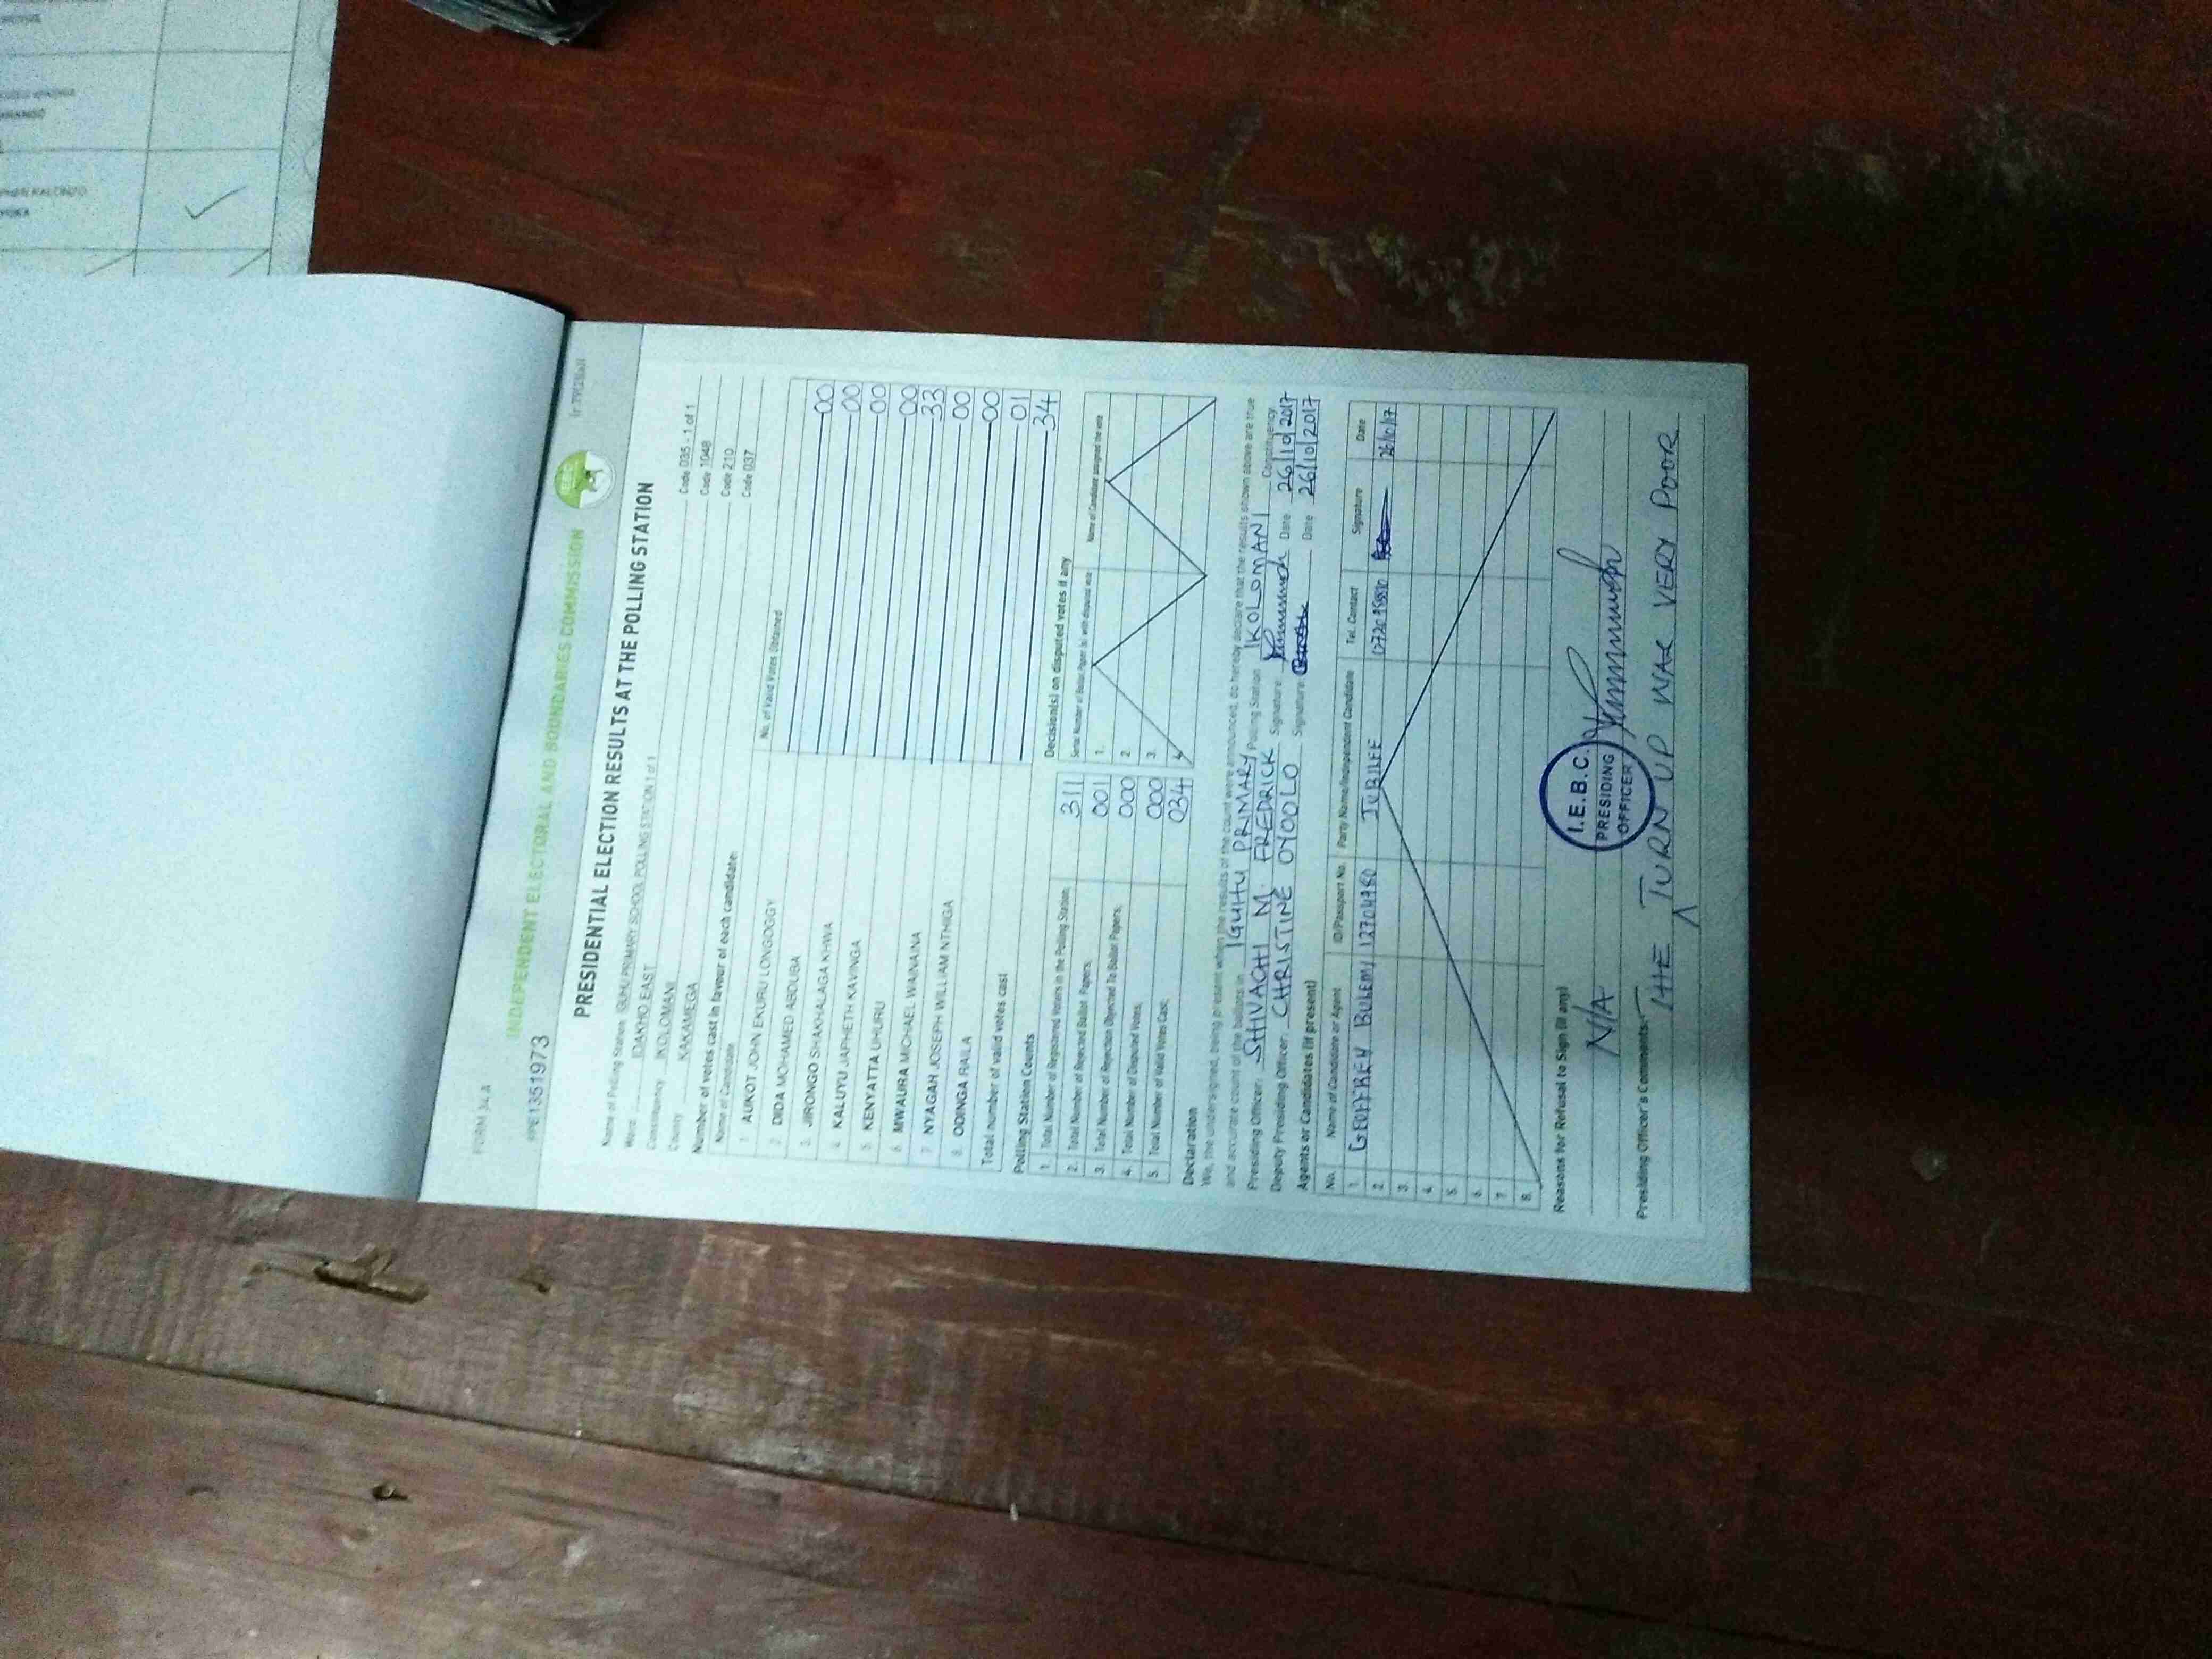 FORM 34 A
INDEPENDENT ELECTORAL AND BOUNDARIES COMMISSION
PPE1351973
PRESIDENTIAL ELECTION RESULTS AT THE POLLING STATION
Name of Polling Station IGUHU PRIMARY SCHOOL POLLING STATION 1 of 1 Code 035 - 1 of 1
Ward IDAKHO EAST Code 1048
Constituency IKOLOMANI Code 210
County KAKAMEGA Code 037
Number of votes cast in favour of each candidate:
Name of Candidate No. of Valid Votes Obtained
1. AUKOT JOHN EKURU LONGOGGY 00
2. DIDA MOHAMED ABDUBA 00
3. JIRONGO SHAKHALAGA KHWA 00
4. KALUYU JAPHETH KAVINGA 00
5. KENYATTA UHURU 33
6. MWAURA MICHAEL WAINAINA 00
7. NYAGAH JOSEPH WILLIAM NTHIGA 00
8. ODINGA RAILA 01
Total number of valid votes cast 34
Polling Station Counts
1. Total Number of Registered Voters in the Polling Station 311
2. Total Number of Rejected Ballot Papers. 001
3. Total Number of Rejection Objected To Ballot Papers. 000
4. Total Number of Disputed Votes. 000
5. Total Number of Valid Votes Cast. 034
Decision(s) on disputed votes if any
Serial Number of Ballot Paper (s) with disputed vote Name of Candidate assigned the vote
1.
2.
3.
4.
Declaration
We, the undersigned, being present when the results of the count were announced, do hereby declare that the results shown above are true
and accurate count of the ballots in IGUHU PRIMARY Polling Station IKOLOMANI Constituency
Presiding Officer: SHIVACHI M. FREDRICK Signature: Date 26/10/2017
Deputy Presiding Officer: CHRISTINE OYOOLO Signature: Date 26/10/2017
Agents or Candidates (if present)
No. Name of Candidate or Agent ID/Passport No. Party Name/Independent Candidate Tel. Contact Signature Date
1. GEOFFREY BULEMI 12704980 JUBILEE 26/10/17
2.
3.
4.
5.
6.
7.
8.
Reasons for Refusal to Sign (if any)
N/A
I.E.B.C.
PRESIDING
OFFICER
Presiding Officer's Comments:
THE TURN UP WAS VERY POOR